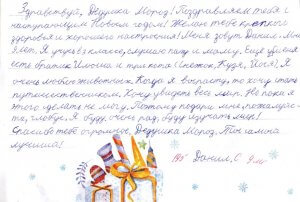 Здравствуй, Дедушка Мороз! Поздравляем тебя с
наступающим Новым годом! Желаю тебе крепкого
здоровья и хорошего настроения! Меня зовут Данил. Мне
9 лет. Я учусь в 3 классе, слушаю папу и маму. Ещё у меня
есть братик Илюша и три кота (Снежок, Кузя, Йося). Я
очень люблю животных. Когда я вырасту, то хочу стать
путешественником. Хочу увидеть весь мир. Но пока я
этого сделать не могу. Поэтому подари мне, пожалуйс-
та, глобус. Я буду очень рад, буду изучать мир!
Спасибо тебе огромное, Дедушка Мороз. Ты самый
лучший!
Данил, С 9 лет